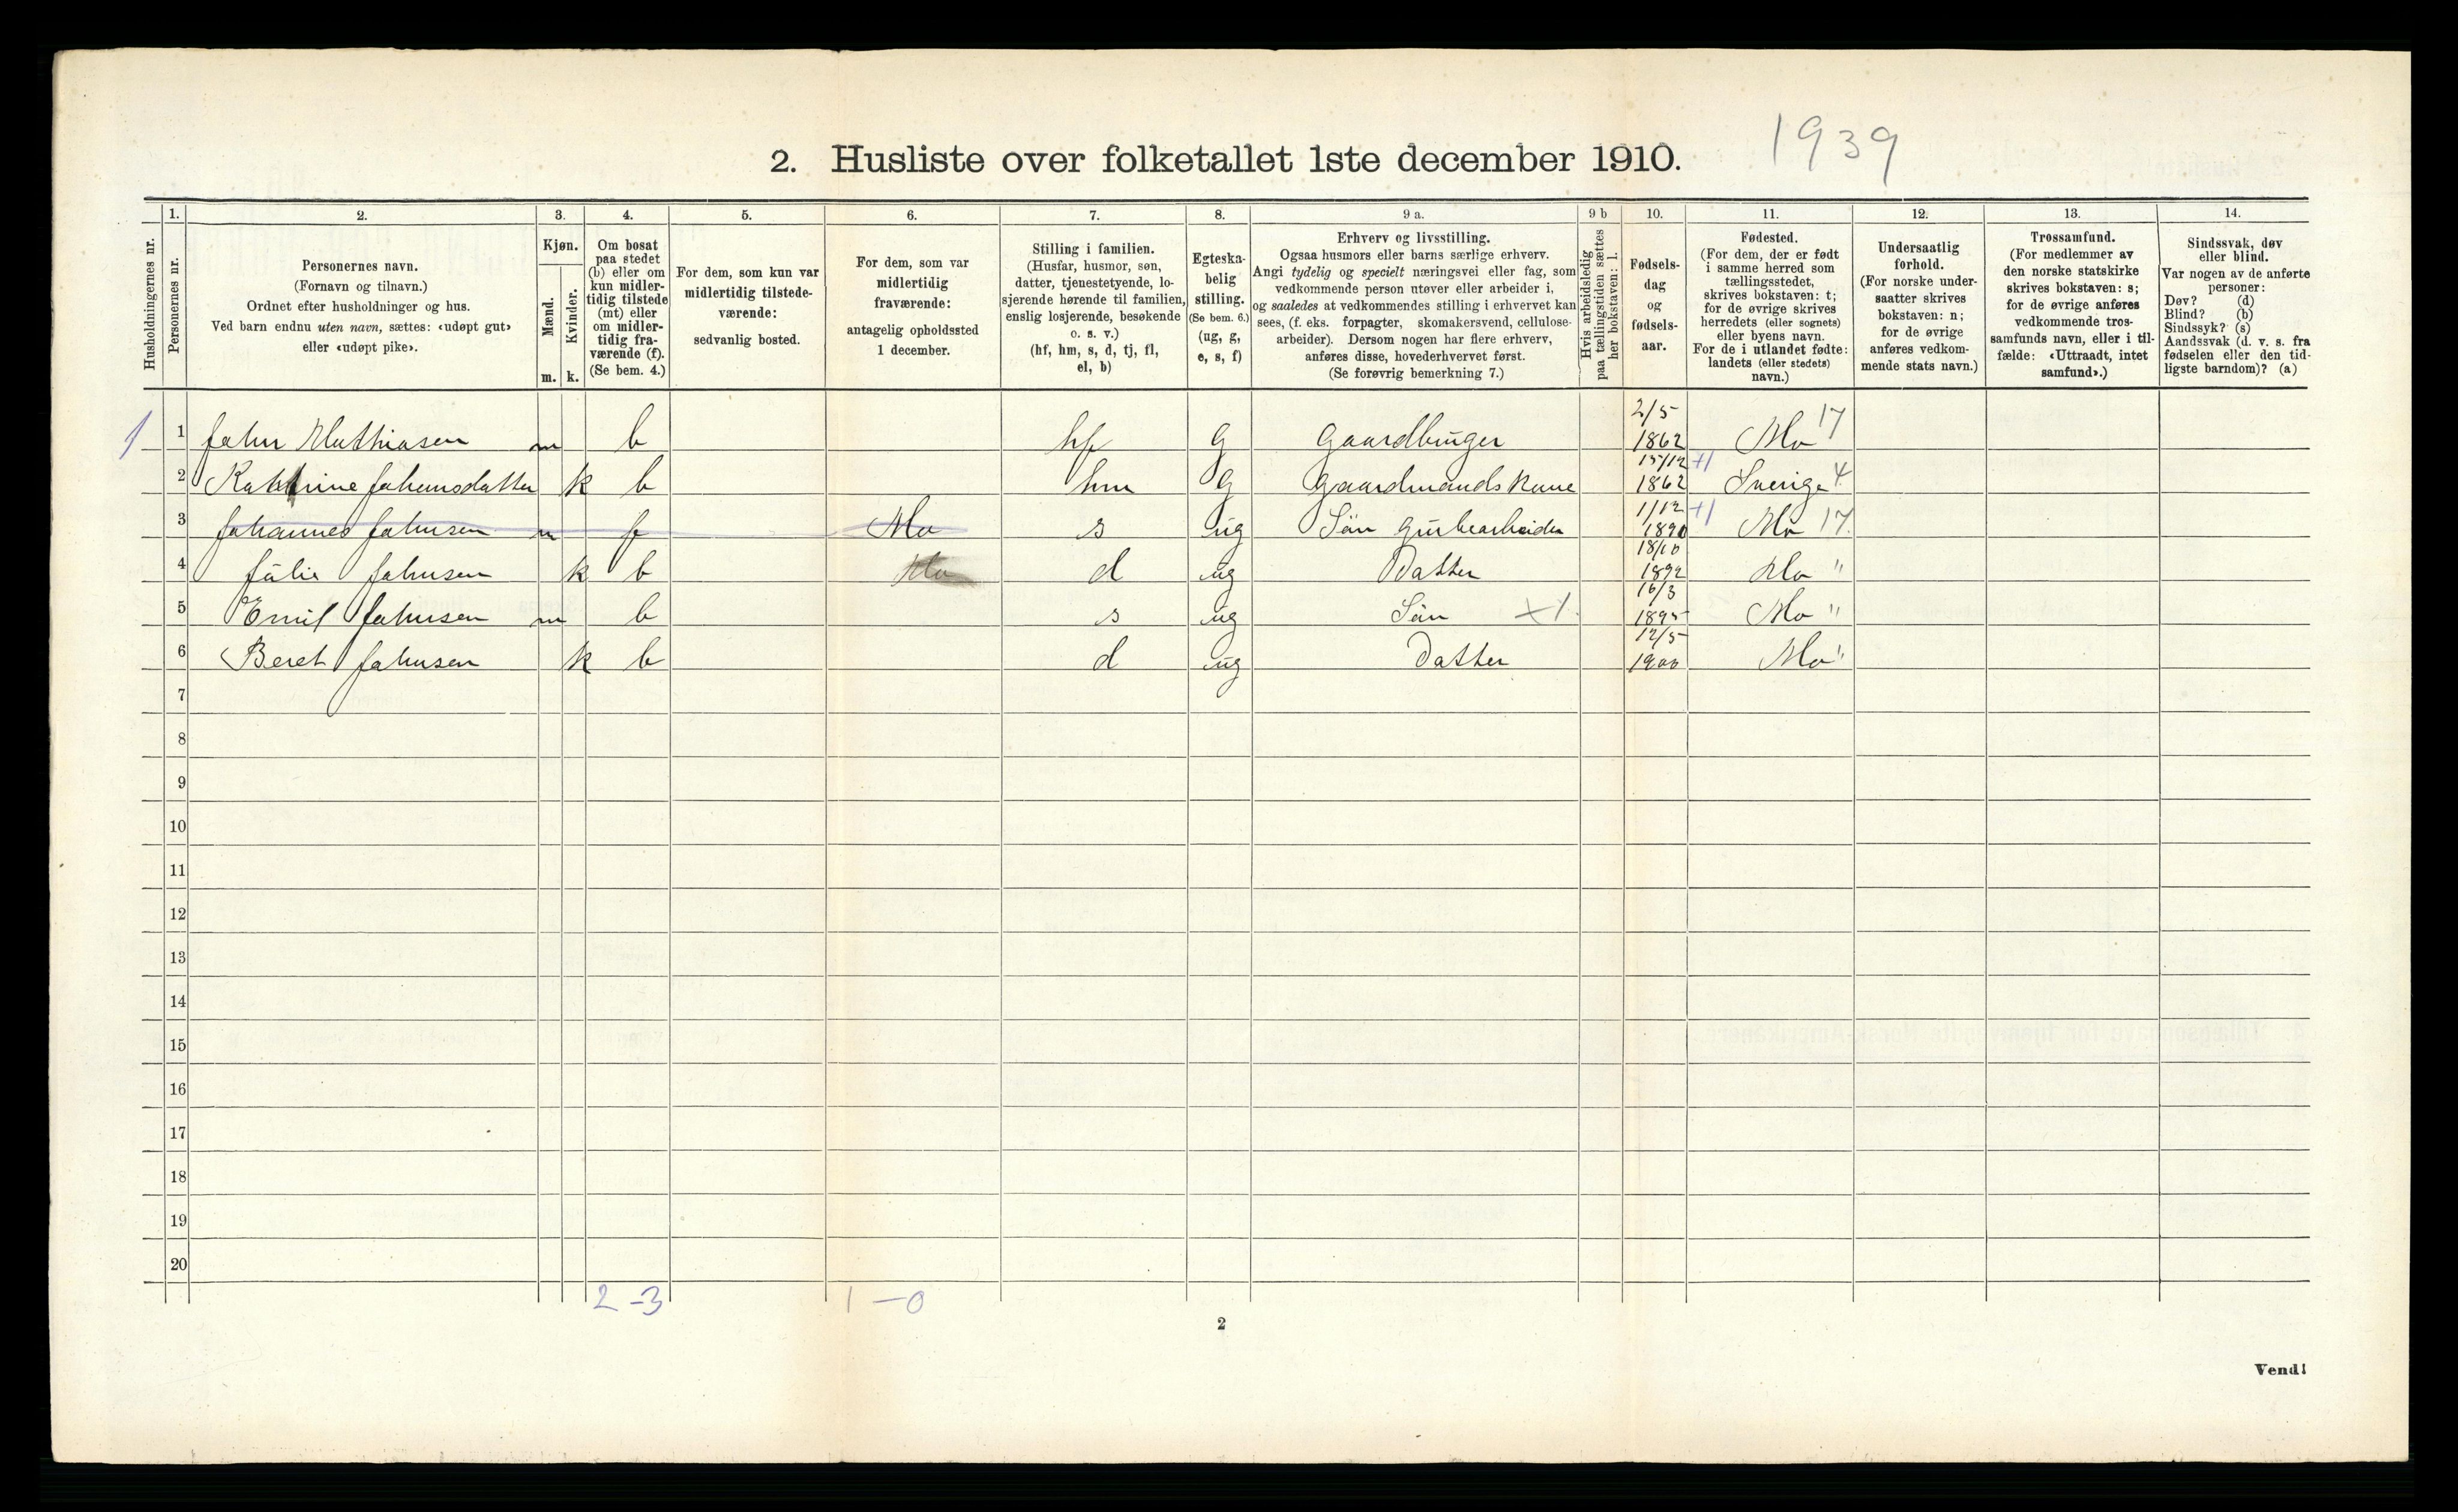 2. Husliste over folketallet 1ste december 1910.
1939
Husholdningernes nr.
1. Personernes nr.
2. Personernes navn.
(Fornavn og tilnavn.)
Ordnet efter husholdninger og hus.
Ved barn endnu uten navn, sættes: «udøpt gut»
eller «udøpt pike».
3. Kjøn.
Mænd. m.
Kvinder. k.
4. Om bosat
paa stedet
(b) eller om
kun midler-
tidig tilstede
(mt) eller
om midler-
tidig fra-
værende (f).
(Se bem. 4.)
5. For dem, som kun var
midlertidig tilstede-
værende:
sedvanlig bosted.
6. For dem, som var
midlertidig
fraværende:
antagelig opholdssted
1 december.
7. Stilling i familien.
(Husfar, husmor, søn,
datter, tjenestetyende, lo-
sjerende hørende til familien,
enslig losjerende, besøkende
o. s. v.)
(hf, hm, s, d, tj, fl,
el, b)
8. Egteska-
belig
stilling.
(Se bem. 6.)
(ug, g,
e, s, f)
9 a. Erhverv og livsstilling.
Ogsaa husmors eller barns særlige erhverv.
Angi tydelig og specielt næringsvei eller fag, som
vedkommende person utøver eller arbeider i,
og saaledes at vedkommendes stilling i erhvervet kan
sees, (f. eks. forpagter, skomakersvend, cellulose-
arbeider). Dersom nogen har flere erhverv,
anføres disse, hovederhvervet først.
(Se forøvrig bemerkning 7.)
9 b Hvis arbeidsledig
paa tællingstiden sættes
her bokstaven: l.
10. Fødsels-
dag
og
fødsels-
aar.
11. Fødested.
(For dem, der er født
i samme herred som
tællingsstedet,
skrives bokstaven: t;
for de øvrige skrives
herredets (eller sognets)
eller byens navn.
For de i utlandet fødte:
landets (eller stedets)
navn.)
12. Undersaatlig
forhold.
(For norske under-
saatter skrives
bokstaven: n;
for de øvrige
anføres vedkom-
mende stats navn.)
13. Trossamfund.
(For medlemmer av
den norske statskirke
skrives bokstaven: s;
for de øvrige anføres
vedkommende tros-
samfunds navn, eller i til-
fælde: «Uttraadt, intet
samfund».)
14. Sindssvak, døv
eller blind.
Var nogen av de anførte
personer:
Døv? (d)
Blind? (b)
Sindssyk? (s)
Aandssvak (d. v. s. fra
fødselen eller den tid-
ligste barndom)? (a)
1 1 Jahn Mathiasen m b hf g Gaardbruger 2/5 1862 Mo 17
2 Kathrine Johansdatter k b hm g Gaardmands Kone 15/12 1862 Sverige 4
3 Johannes Jahnsen m f Mo s ug Sön Gurbearbeider 1/12 1890 Mo 17
4 Julie Jahnsen k b Mo d ug Datter 18/10 1892 Mo "
5 Emil Jahnsen m b s ug Sön X1. 16/3 1895 Mo "
6 Beret Jahnsen k b d ug Datter 12/5 1900 Mo "
7
8
9
10
11
12
13
14
15
16
17
18
19
20
2 - 3 1 - 0
2
Vend!